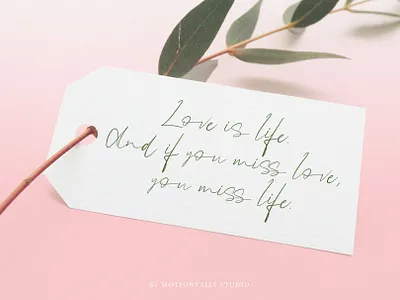 Love is life.
And if you miss love,
you miss life.
BY MOTIONTAILS STUDIO